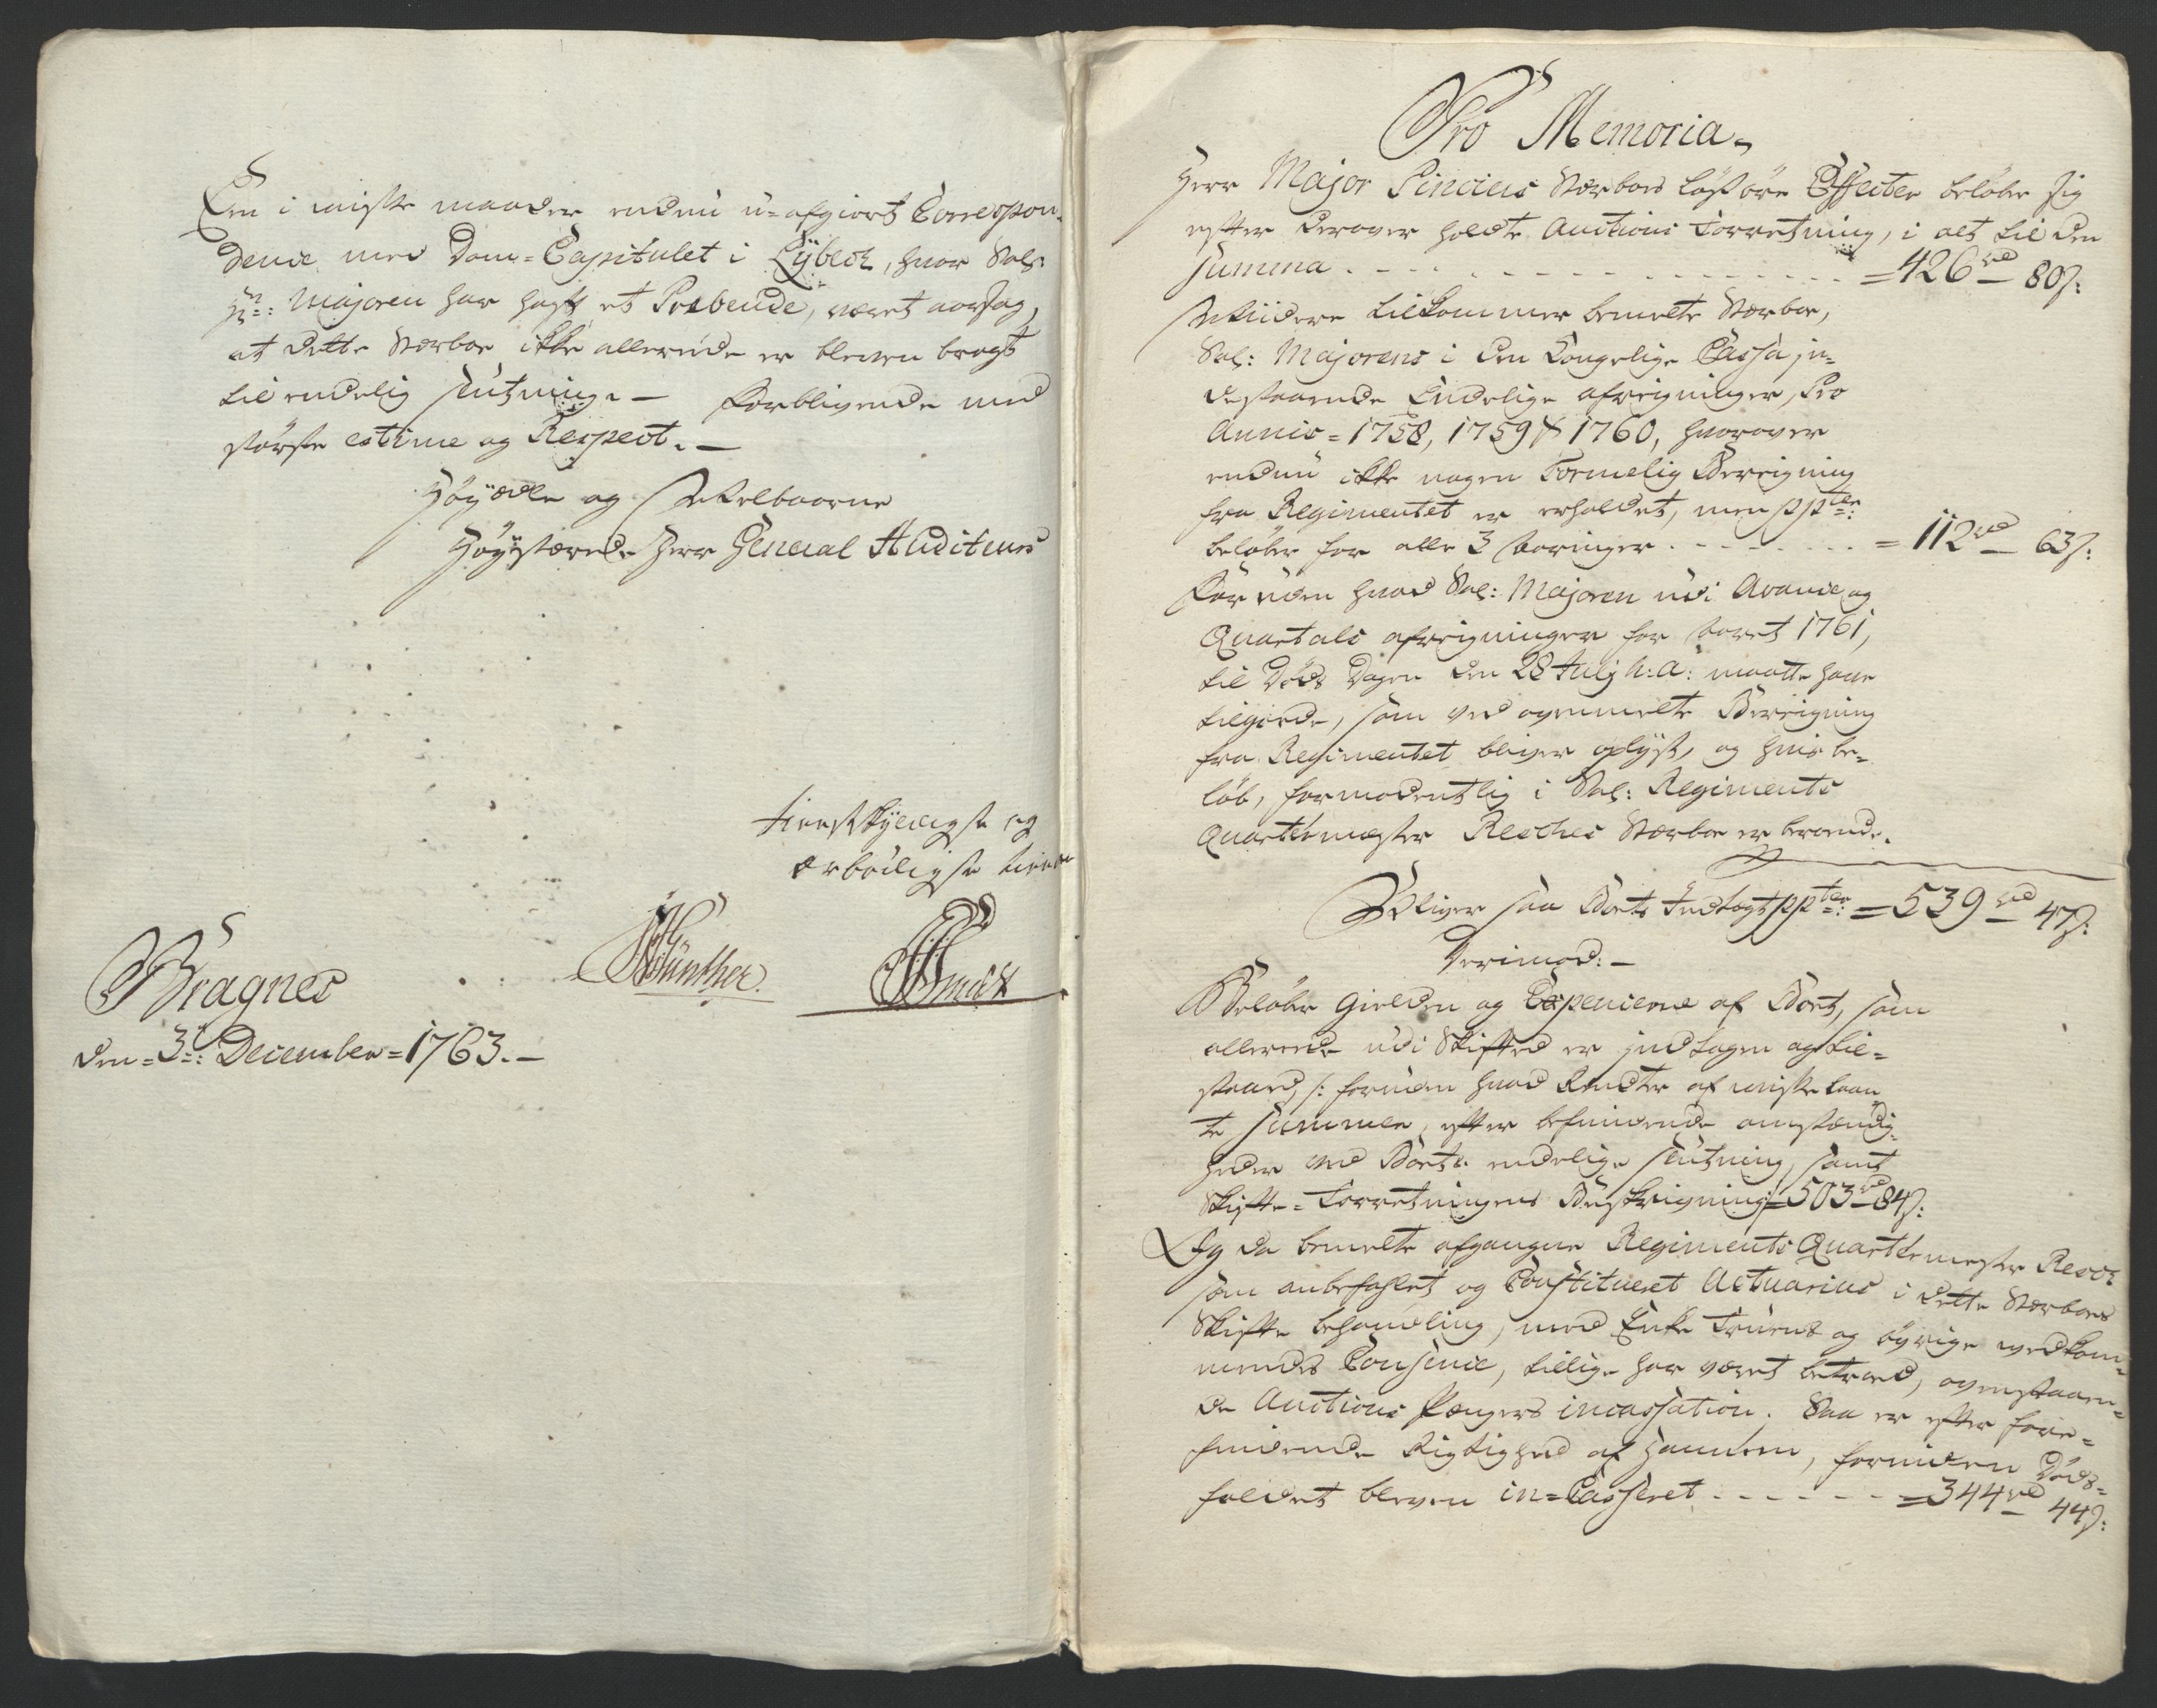 En i visse maader endnu u-afgiort Correspon-
dence med Dom-Capitulet i Lybeck, hvor Sal:
Hr: Majoren har haft et Præbende, været aarsag,
at dette Stærboe ikke allerede er bleven bragt
til endelig slutning. — Forblivende med
største estime og Respect. —
Høyædle og Velbaarne
Høystærede Herr General Auditeurs
tienstskyldigste og
ærbødigste tienere
Günther. Smidt
Bragnes
den = 3de: December = 1763. —
Pro Memoria.
Herr Major Pincius Stærboes løsøre Effecter beløbe sig
efter derover holdte Auctions Forretning, i alt til den
Summa . . . . = 426 rd 80 s:
Videre tilkommer bemelte Stærboe,
Sal: Majorens i den Kongelige Cassa in-
destaaende Endelige afreigninger, Pro
Annis = 1758, 1759 & 1760, hvorover
endnu ikke nogen Formelig Bereigning
fra Regimentet er erholdet, men pptr:
beløber for alle 3 Aaringer . . . . = 112 rd 63 s:
For uden hvad Sal: Majoren udi Avance og
Quartals afreigninger for Aaret 1761,
til Døds Dagen den 28 Julij h: a: maatte have
tilgode, som ved ovenmelte Bereigning
fra Regimentet bliver oplyst, og hvis be-
løb, formodentlig i Sal: Regiments
Quarteermester Resches Stærboe er beroende.
Bliver saa Boets Indtægt pptr: = 539 rd 47 s:
Derimod: —
Beløber Gielden og Expencerne af Boet, som
allerede udi Skiftet er indtagen og til-
staaed, /: foruden hvad Renter af visse laan-
te Summer, efter befindende omstændig-
heder ved Boets endelige slutning, samt
Skifte-Forretningens Beskrivning :/ = 503 rd 84 s:
Og da bemelte afgangne Regiments Quarteermester Resch
som anbefahlet og Constitueret Actuarius i dette Stærboes
Skifte behandling, med Enke Fruens og øvrige vedkom-
mendes Consence, tillige har været betroed, ovenstaaen-
de Auctions Penges incassation. Saa er efter fore-
findende Rigtighed af Hannem, forinden Døds-
faldet bleven in-Casseret . . . . = 344 rd 44 s: